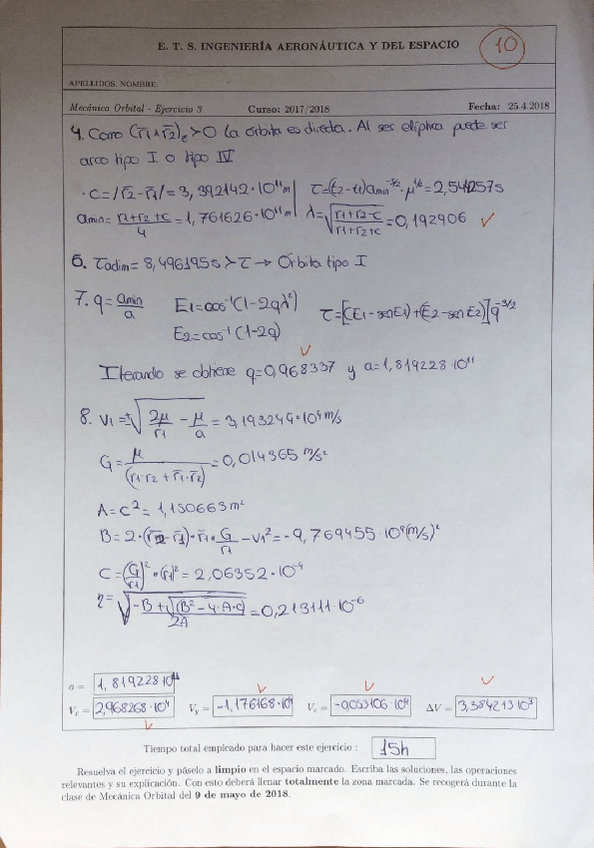 E. T. S. INGENIERÍA AERONÁUTICA Y DEL ESPACIO
10
APELLIDOS, NOMBRE:
Mecánica Orbital - Ejercicio 3 Curso: 2017/2018 Fecha: 25.4.2018
4. Como (r̄1∧r̄2)z>0 la órbita es directa. Al ser elíptica puede ser
arco tipo I o tipo IV
· C=|r̄2-r̄1|=3,392142·10¹¹m τ=(t2-t1)amin^-3/2·μ^1/2=2,541257s
amin=(r1+r2+c)/4=1,761626·10¹¹m λ=√((r1+r2-c)/(r1+r2+c))=0,192906
6. τadim=8,496195s>τ → Órbita tipo I
7. q=amin/a E1=cos⁻¹(1-2qλ²) τ=[(E1-senE1)+(E2-senE2)]q^-3/2
E2=cos⁻¹(1-2q)
Iterando se obtiene q=0,968337 y a=1,819228·10¹¹
8. V1=±√(2μ/r1-μ/a)=3,193249·10⁴m/s
G=μ/(r1·r2+r̄1·r̄2)=0,014365m/s²
A=c²=1,150663m²
B=2·(r̄2-r̄1)·r̄1·G/r1-V1²=-9,769455·10⁸(m/s)²
C=(G/r1)²·(r1)²=2,06352·10⁻⁴
=√((-B+√(B²-4·A·C))/2A)=0,213111·10⁻⁶
a = 1,819228·10¹¹
Vx = 2,968268·10⁴ Vy = -1,176168·10⁴ Vz = -0,053106·10⁴ ΔV = 3,384213·10³
Tiempo total empleado para hacer este ejercicio : 15h
Resuelva el ejercicio y páselo a limpio en el espacio marcado. Escriba las soluciones, las operaciones
relevantes y su explicación. Con esto deberá llenar totalmente la zona marcada. Se recogerá durante la
clase de Mecánica Orbital del 9 de mayo de 2018.